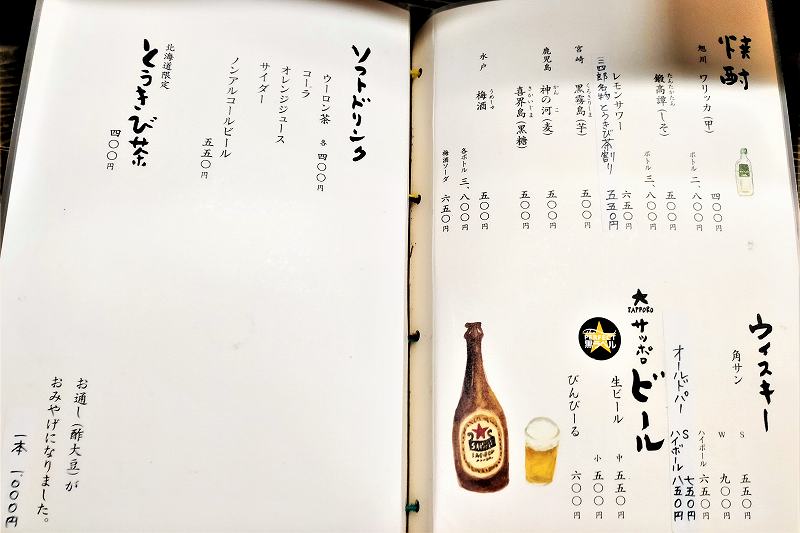 焼酎
旭川 ワリッカ（甲） 四〇〇円
ボトル 二、八〇〇円
鍛高譚（しそ） たんたかたん 五〇〇円
ボトル 三、八〇〇円
レモンサワー 六五〇円
三四郎名物 とうきび茶割り 五五〇円
宮崎 黒霧島（芋） くろきりしま 五〇〇円
鹿児島 神の河（麦） かんのこ 五〇〇円
喜界島（黒糖） きかいじま 五〇〇円
水戸 梅酒 うめーす 五〇〇円
各ボトル 三、八〇〇円
梅酒ソーダ 六五〇円
ウィスキー
角サン S 五五〇円
W 九〇〇円
ハイボール 六五〇円
オールドパー S 七五〇円
ハイボール 八五〇円
★
SAPPORO
サッポロビール
PERFECT
黒ラベル
生ビール 中 五五〇円
小 五〇〇円
びんびーる 六〇〇円
ソフトドリンク
ウーロン茶 各 四〇〇円
コーラ
オレンジジュース
サイダー
ノンアルコールビール 五五〇円
北海道限定
とうきび茶 四〇〇円
お通し（酢大豆）が
おみやげになりました。
一本 一、〇〇〇円